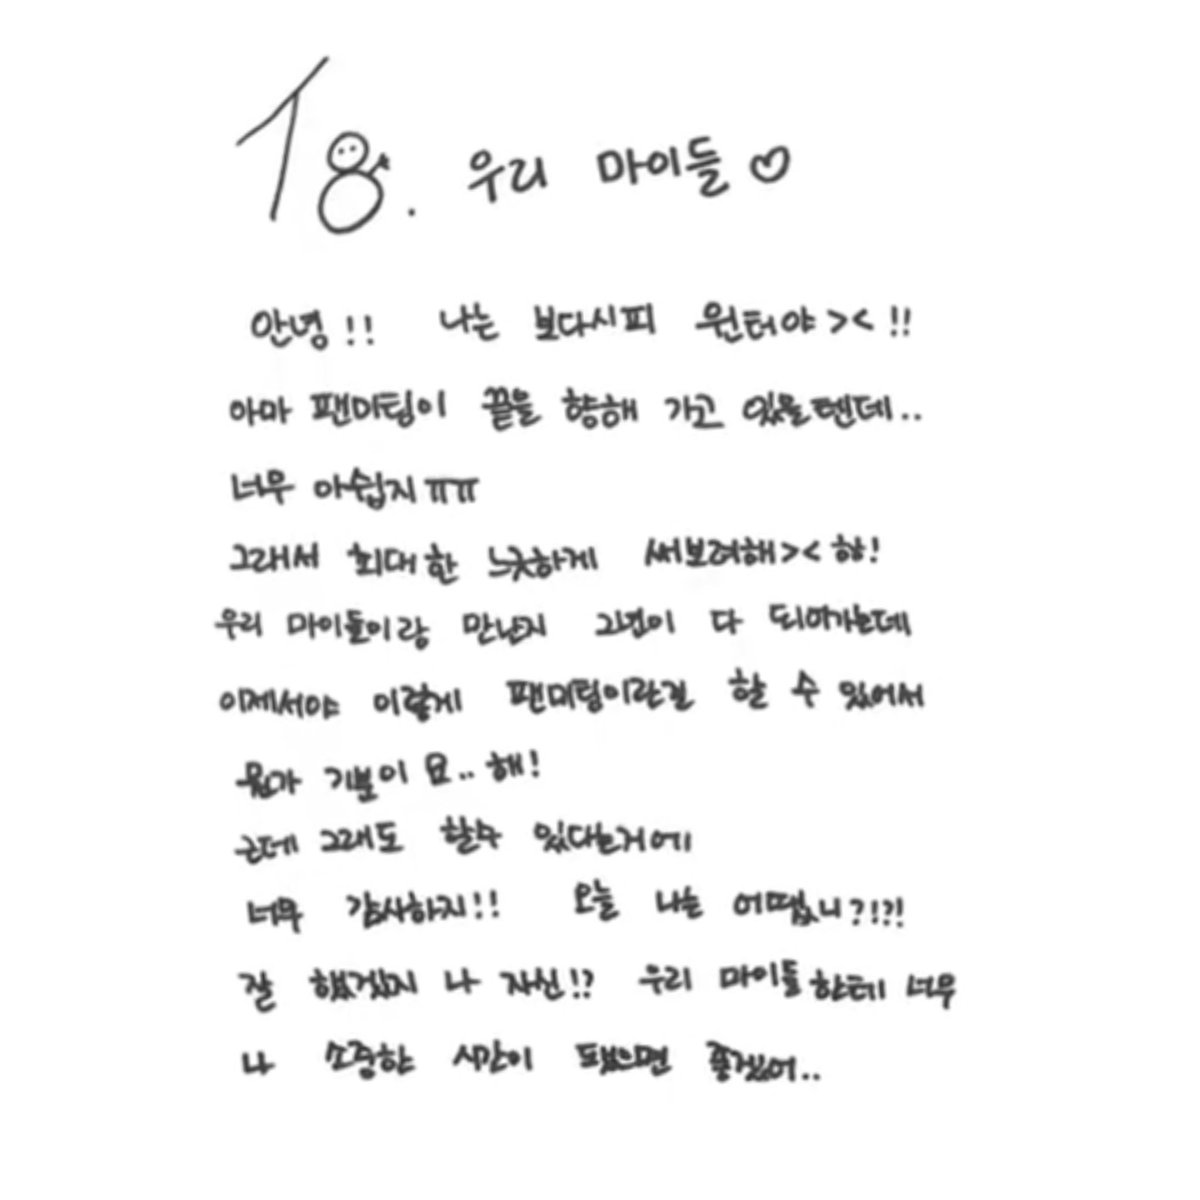 To. 우리 마이들♡
안녕!! 나는 보다시피 윈터야><!!
아마 팬미팅이 끝을 향해 가고 있을텐데..
너무 아쉽지ㅠㅠ
그래서 최대한 느긋하게 써보려해>< 햫!
우리 마이들이랑 만난지 2년이 다 되어가는데
이제서야 이렇게 팬미팅이란걸 할 수 있어서
뭔가 기분이 묘..해!
근데 그래도 할수 있다는거에
너무 감사하지!! 오늘 나는 어땠니?!?!
잘 했겠지 나 자신!? 우리 마이들한테 너무
나 소중한 시간이 됐으면 좋겠어..